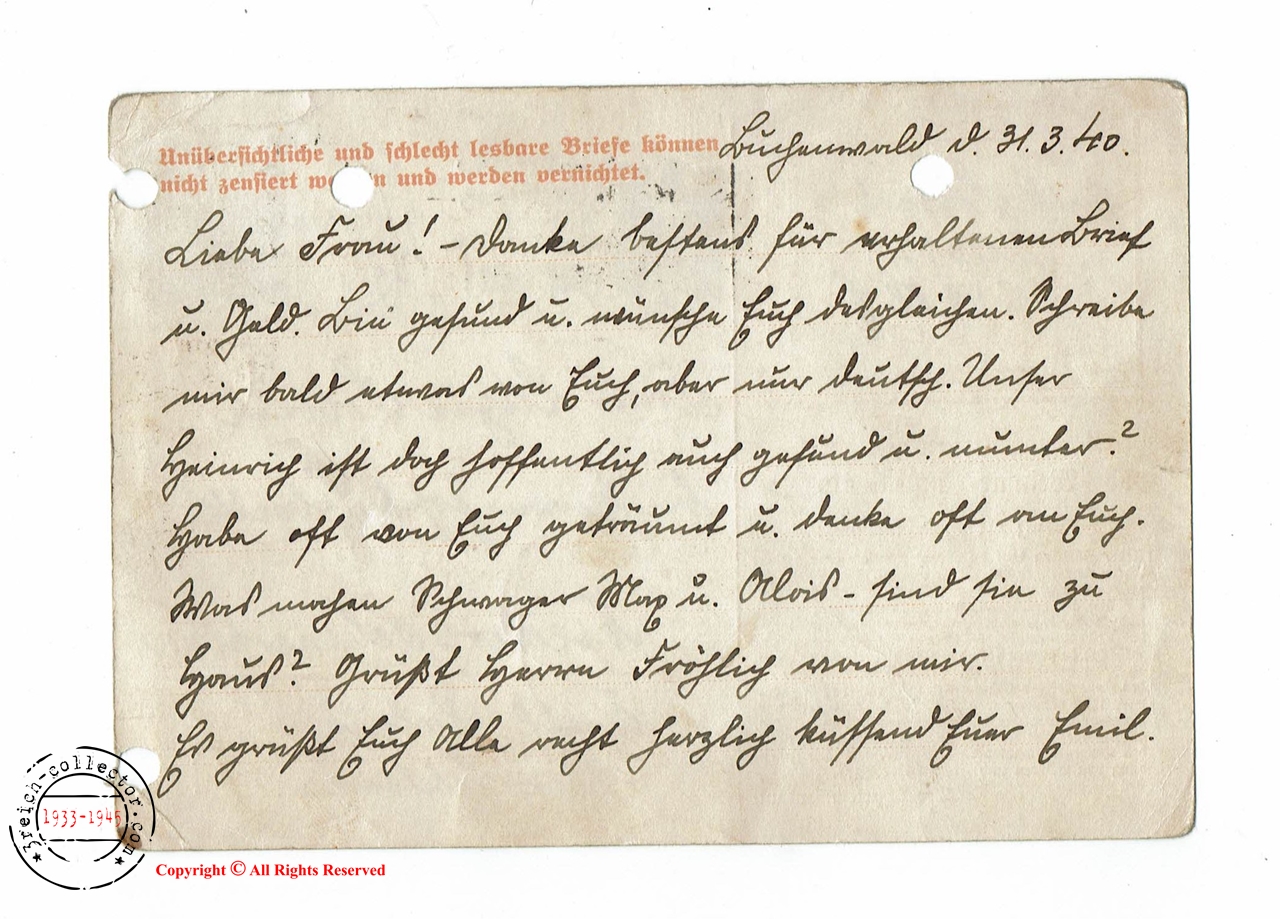 Unübersichtliche und schlecht lesbare Briefe können
nicht zensiert werden und werden vernichtet.
Buchenwald d. 31.3.40.
Liebe Frau! – Danke bestens für erhaltenen Brief
u. Geld. Bin gesund u. wünsche Euch desgleichen. Schreibe
mir bald etwas von Euch, aber nur deutsch. Unser
Heinrich ist doch hoffentlich auch gesund u. munter?
Habe oft von Euch geträumt u. denke oft an Euch.
Was machen Schwager Max u. Alois – sind sie zu
Haus? Grüßt Herrn Fröhlich von mir.
Es grüßt Euch Alle recht herzlich küssend Euer Emil.
3reich-collector.com
1933-1945
Copyright © All Rights Reserved